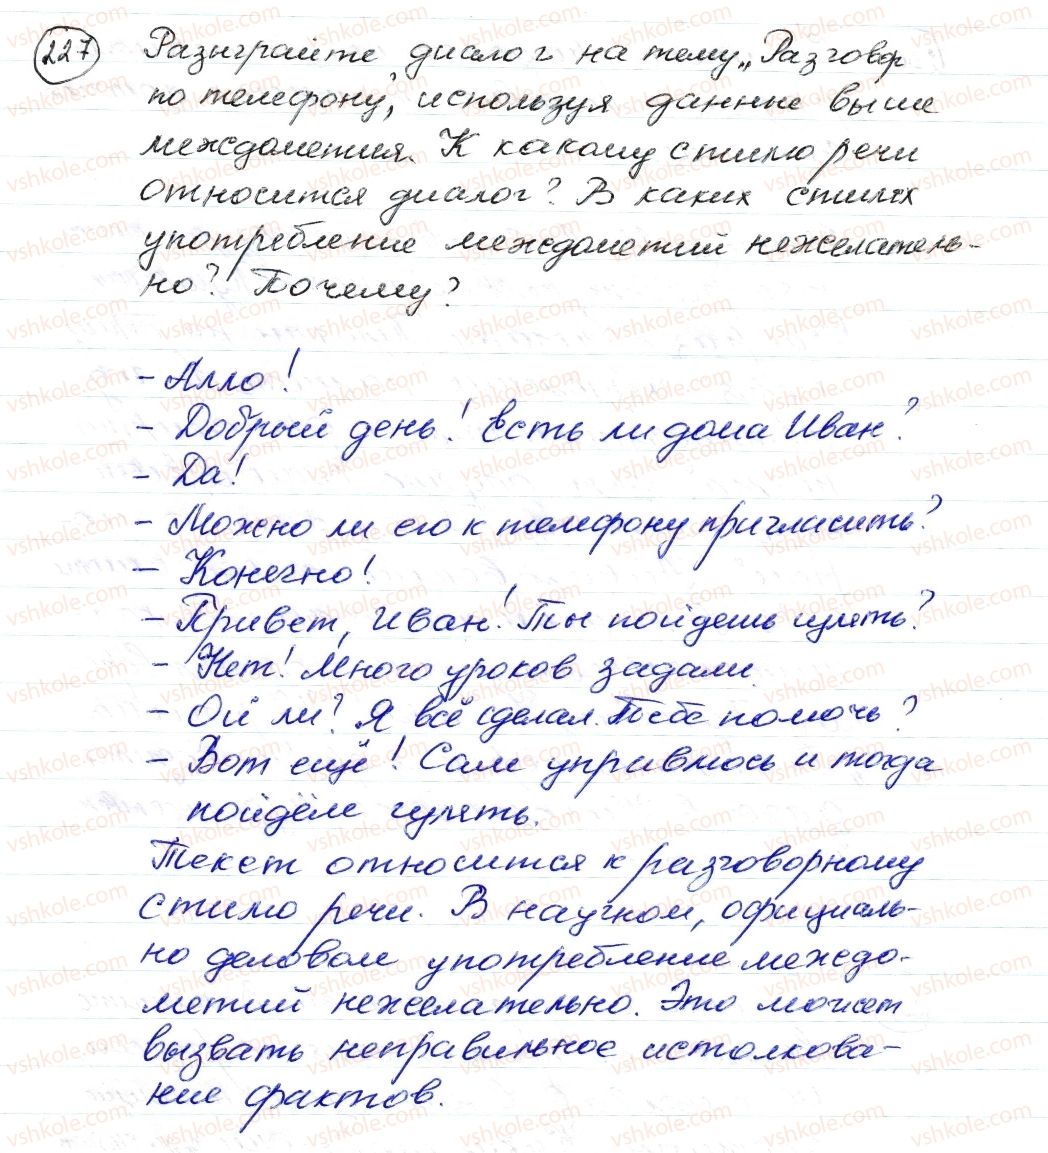 227 Разыграйте диалог на тему „Разговор
по телефону", используя данные выше
междометия. К какому стилю речи
относится диалог? В каких стилях
употребление междометий нежелатель-
но? Почему?
- Алло!
- Добрый день! Есть ли дома Иван?
- Да!
- Можно ли его к телефону пригласить?
- Конечно!
- Привет, Иван! Ты пойдешь гулять?
- Нет! Много уроков задали.
- Ой ли? Я всё сделал. Тебе помочь?
- Вот ещё! Сам управлюсь и тогда
пойдём гулять.
Текст относится к разговорному
стилю речи. В научном, официаль-
но деловом употребление междо-
метий нежелательно. Это может
вызвать неправильное истолкова-
ние фактов.